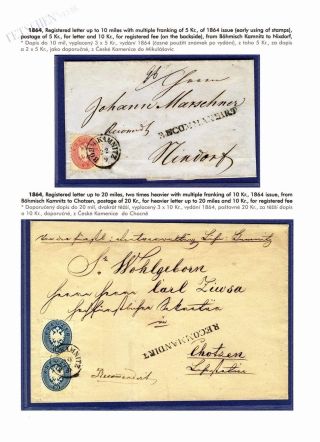 1864, Registered letter up to 10 miles with multiple franking of 5 Kr., of 1864 issue (early using of stamps),
postage of 5 Kr., for letter and 10 Kr., for registered fee (on the backside), from Böhmisch Kamnitz to Nixdorf,
* Dopis do 10 mil, vyplacený 3 x 5 Kr., vydání 1864 (časné použití známek po vydání), z toho 5 Kr., za dopis
a 2 x 5 Kr., jako doporučené, z České Kamenice do Mikulášovic.
Herrn
Johann Marschner
Recomdt
RECOMMANDIRT
KAMNITZ
Nixdorf
1864, Registered letter up to 20 miles, two times heavier with multiple franking of 10 Kr., 1864 issue, from
Böhmisch Kamnitz to Chotzen, postage of 20 Kr., for heavier letter up to 20 miles and 10 Kr., for registered fee
* Doporučený dopis do 20 mil, dvakrát těžší, vyplacený 3 x 10 Kr., vydání 1864, poštovné 20 Kr., za těžší dopis
a 10 Kr., doporučné, z České Kamenice do Chocně
Sr Wohlgeborn
Herrn Herrn Karl
KAMNITZ
RECOMMANDIRT
Chotzen
Recomandirt